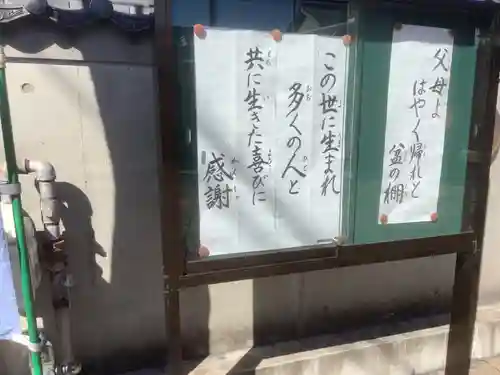 父母よ
はやく帰れと
盆の棚
この世に生まれ
多くの人と
共に生きた喜びに
感謝